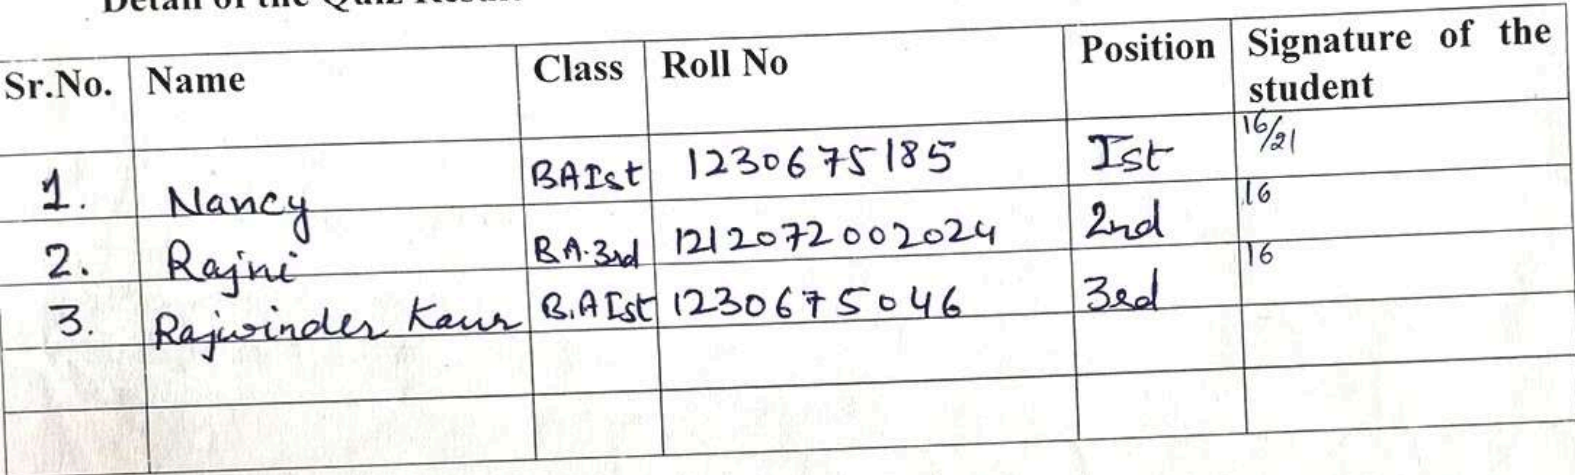 Detail of the Quiz Result
Sr.No. Name Class Roll No Position Signature of the student
1. Nancy BA Ist 1230675185 Ist 16/21
2. Rajni BA.3rd 1212072002024 2nd 16
3. Rajwinder Kaur B.A Ist 1230675046 3rd 16